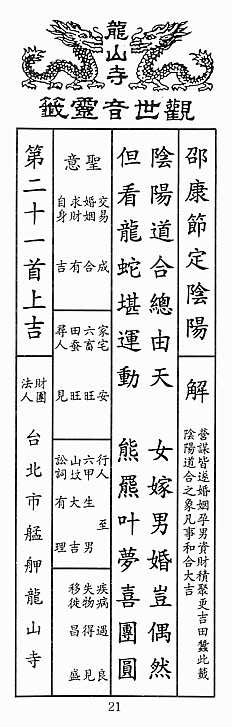 龍山寺
觀世音靈籤
邵康節定陰陽
解
營謀皆遂婚姻孕男資財積聚更吉田蠶此籤
陰陽道合之象凡事和合大吉
陰陽道合總由天 女嫁男婚豈偶然
但看龍蛇堪運動 熊羆叶夢喜團圓
聖意
交易 成
婚姻 合
求財 有
自身 吉
家宅 安
六畜 旺
田蚕 旺
尋人 見
行人 至
六甲 生男
山坟 大吉
訟詞 有理
疾病 遇良
失物 得見
移徙 昌盛
第二十一首上吉
財團
法人
台北市艋舺龍山寺
21